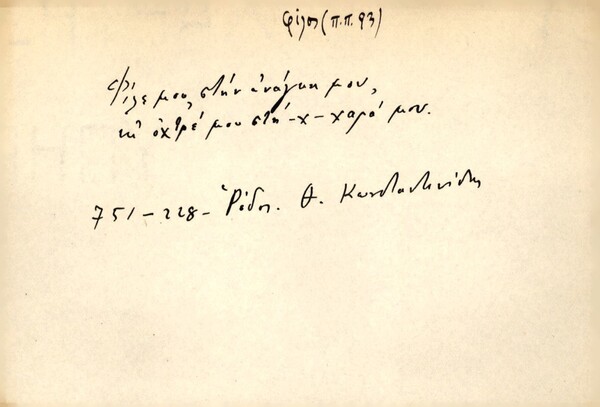 φίλος (π.π. 93)
Φίλε μου, στὴν ἀνάγκη μου,
κι' ὀχτρέ μου στὴ -χ- χαρά μου.
751-228- Ρόδος. Θ. Κωνσταντινίδης